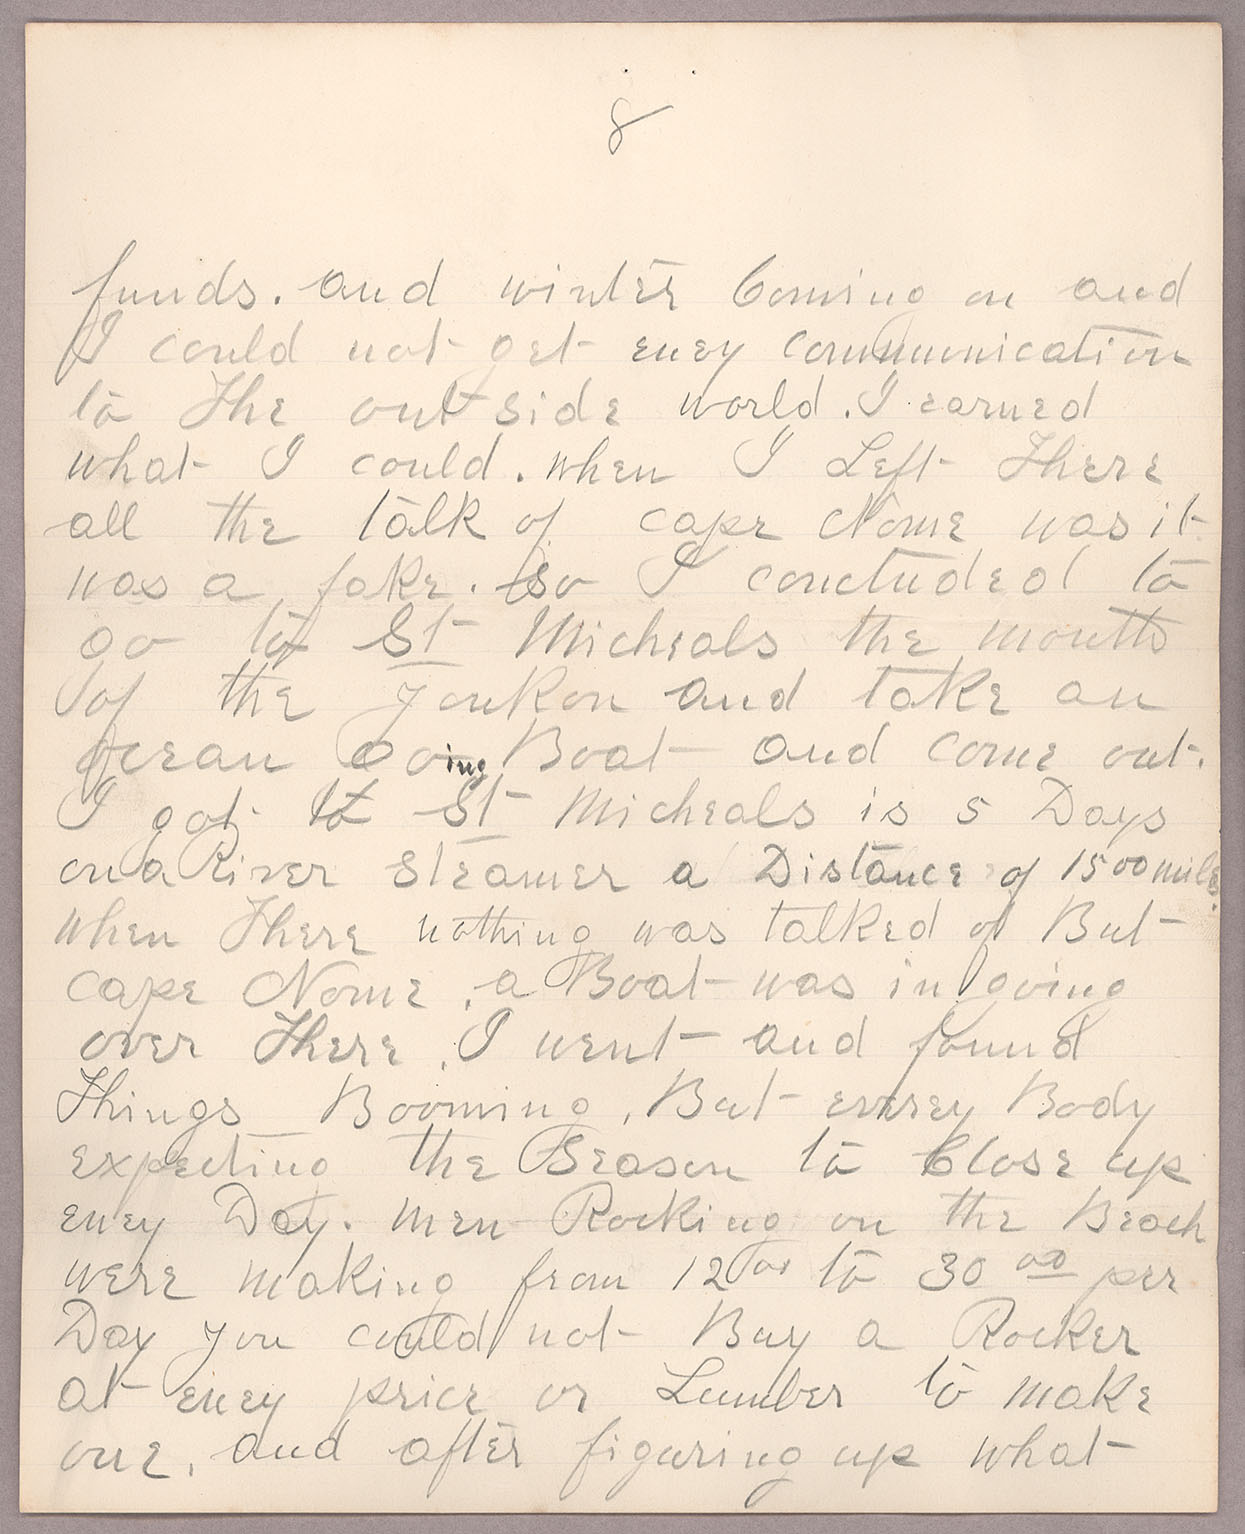 8
funds. and winter Coming on and
I could not get eney communication
to The outside world. I earned
what I could. when I Left There
all the talk of cape Nome was it
was a fake. So I concluded to
go to St Micheals the mouth
of the Youkon and take an
ocean Going Boat and come out.
I got to St Micheals is 5 Days
on a River Steamer a Distance of 1500 miles.
when There nothing was talked of But
Cape Nome, a Boat was in going
over There, I went and found
Things Booming, But everey Body
expecting the Season to Close up
eney Day. men Rocking on the Beach
were making from 12 00 to 30 00 per
Day you could not Buy a Rocker
at eney price or Lumber to make
one, and after figuring up what